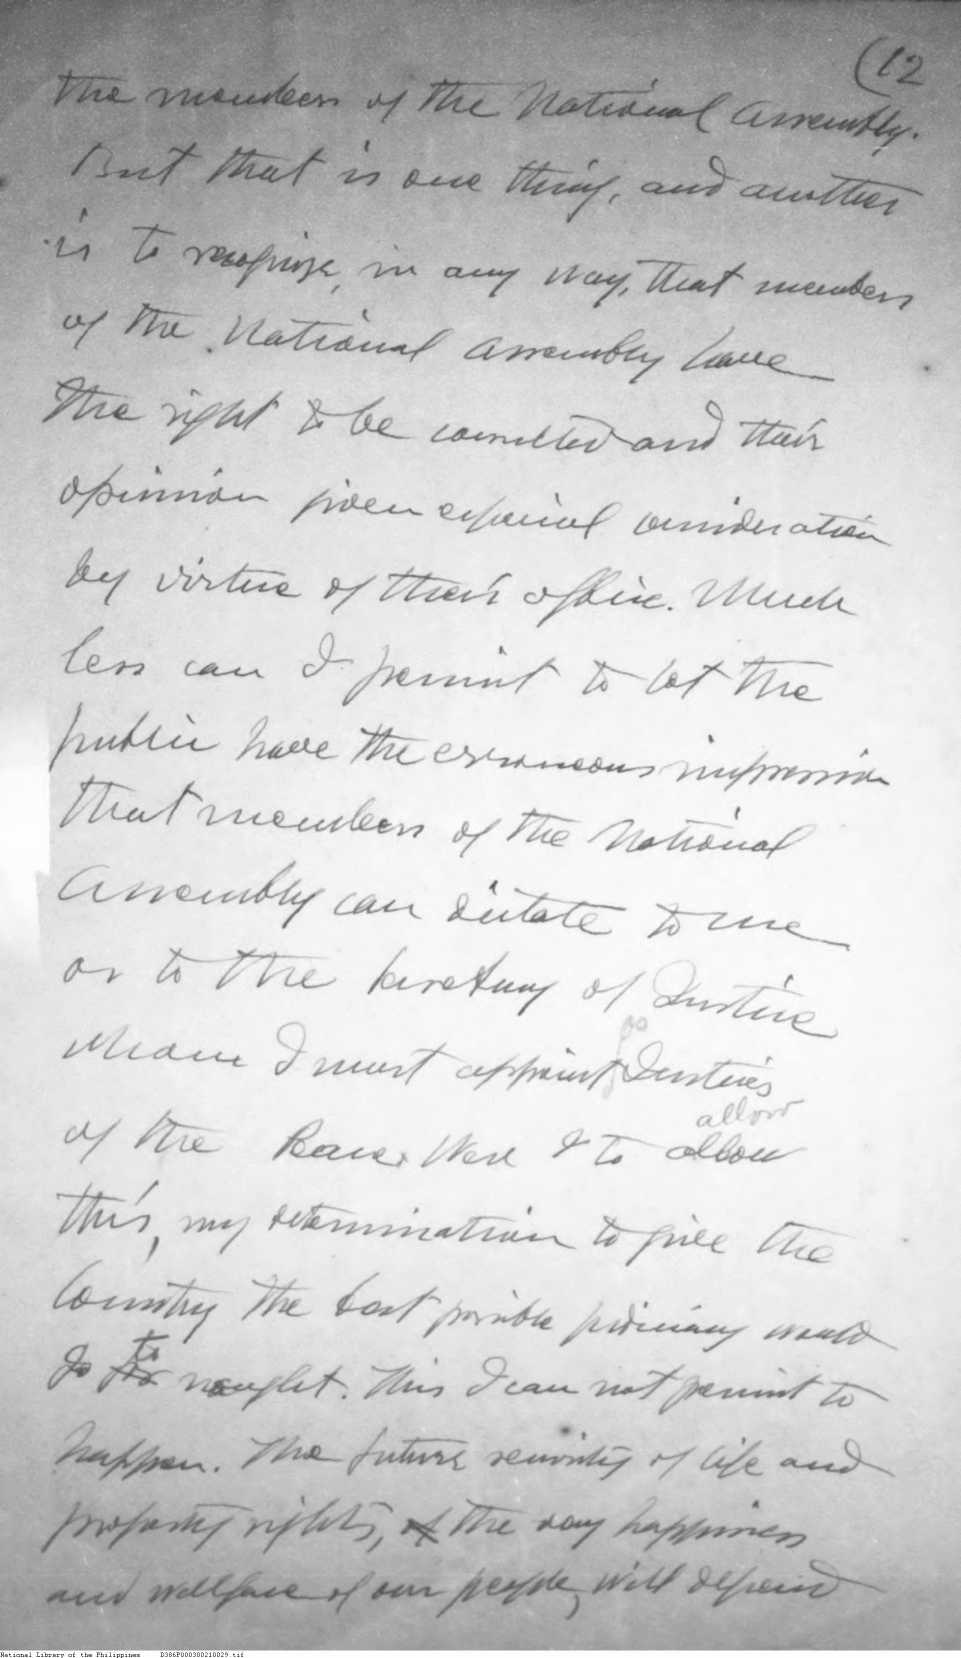 (12
the members of the National Assembly.
But that is one thing, and another
is to recognize, in any way, that members
of the National Assembly have
the right to be consulted and their
opinion given especial consideration
by virtue of their office. Much
less can I permit to let the
public have the erroneous impression
that members of the National
Assembly can dictate to me
or to the Secretary of Justice
whom I must appoint as Justices
allow
of the Peace. Were I to allow
this, my determination to give the
Country the best possible judiciary would
to
go for nought. This I can not permit to
happen. The future security of life and
property rights, of the very happiness
and wellfare of our people, will depend
National Library of the Philippines D386P000300210029.tif